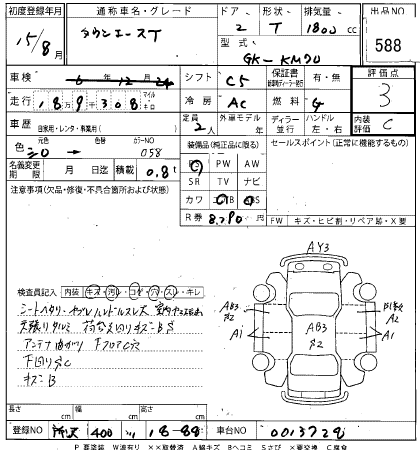 初度登録年月 通称車名・グレード ドア 形状 排気量 出品No
15/8月 タウンエースT 2 T 1800 cc 588
型式 GK-KM70
車検 6年12月24 シフト C5 保証書 有・無 評価点
走行 189308 マイル キロ 冷房 AC 燃料 G 3
車歴 自家用・レンタ・事業用( ) 定員 2人 外車モデル ディーラー 並行 ハンドル 左・右 内装評価 C
色 元色 シロ 色替 カラーNo 058 装備品(純正品に限る) セールスポイント(正常に機能するもの)
名義変更期限 月 日迄 積載 0.8t PS PW AW
注意事項(欠品・修復・不具合箇所および状態) SR TV ナビ
カワ ABS
R券 8,290 FW キズ・ヒビ割・リペア跡・X要
AY3
検査員記入 内装 キズ・汚レ・コゲ・穴・スレ・キレ
シートヘタリ・ヤブレ ハンドルスレ大
天張りタルミ 荷台大凹キズBS
アンテナ曲がり フロアC穴
下回りC
キズB
AB3 B2 A1
AB3 B2
A2 A1
長さ cm 幅 cm 高さ cm
登録No 所沢 400 18-88 車台No 0013728
P 要塗装 W波有り XX取替済 A線キズ Bヘコミ Sさび X要交換 C腐食